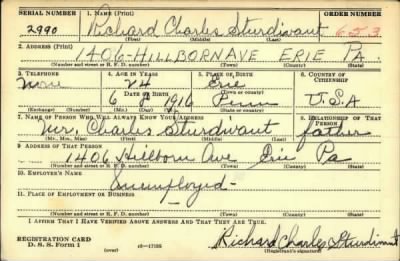 SERIAL NUMBER 1. NAME (Print) ORDER NUMBER
2990 Richard Charles Sturdivant 653
2. ADDRESS (Print)
1406-HILLBORN AVE ERIE PA
(Number and street or R. F. D. number) (Town) (County) (State)
3. TELEPHONE 4. AGE IN YEARS 5. PLACE OF BIRTH 6. COUNTRY OF CITIZENSHIP
None 24 Erie
DATE OF BIRTH (Town or county)
6 8 1916 Penn U.S.A
(Exchange) (Number) (Mo.) (Day) (Yr.) (State or country)
7. NAME OF PERSON WHO WILL ALWAYS KNOW YOUR ADDRESS 8. RELATIONSHIP OF THAT PERSON
Mr. Charles Sturdivant father
(Mr., Mrs., Miss) (First) (Middle) (Last)
9. ADDRESS OF THAT PERSON
1406 Hilborn Ave Erie Pa
(Number and street or R. F. D. number) (Town) (County) (State)
10. EMPLOYER'S NAME
Unemployed-
11. PLACE OF EMPLOYMENT OR BUSINESS
(Number and street or R. F. D. number) (Town) (County) (State)
I AFFIRM THAT I HAVE VERIFIED ABOVE ANSWERS AND THAT THEY ARE TRUE.
REGISTRATION CARD
D. S. S. Form 1 (over) 16-17105 Richard Charles Sturdivant
(Registrant's signature)